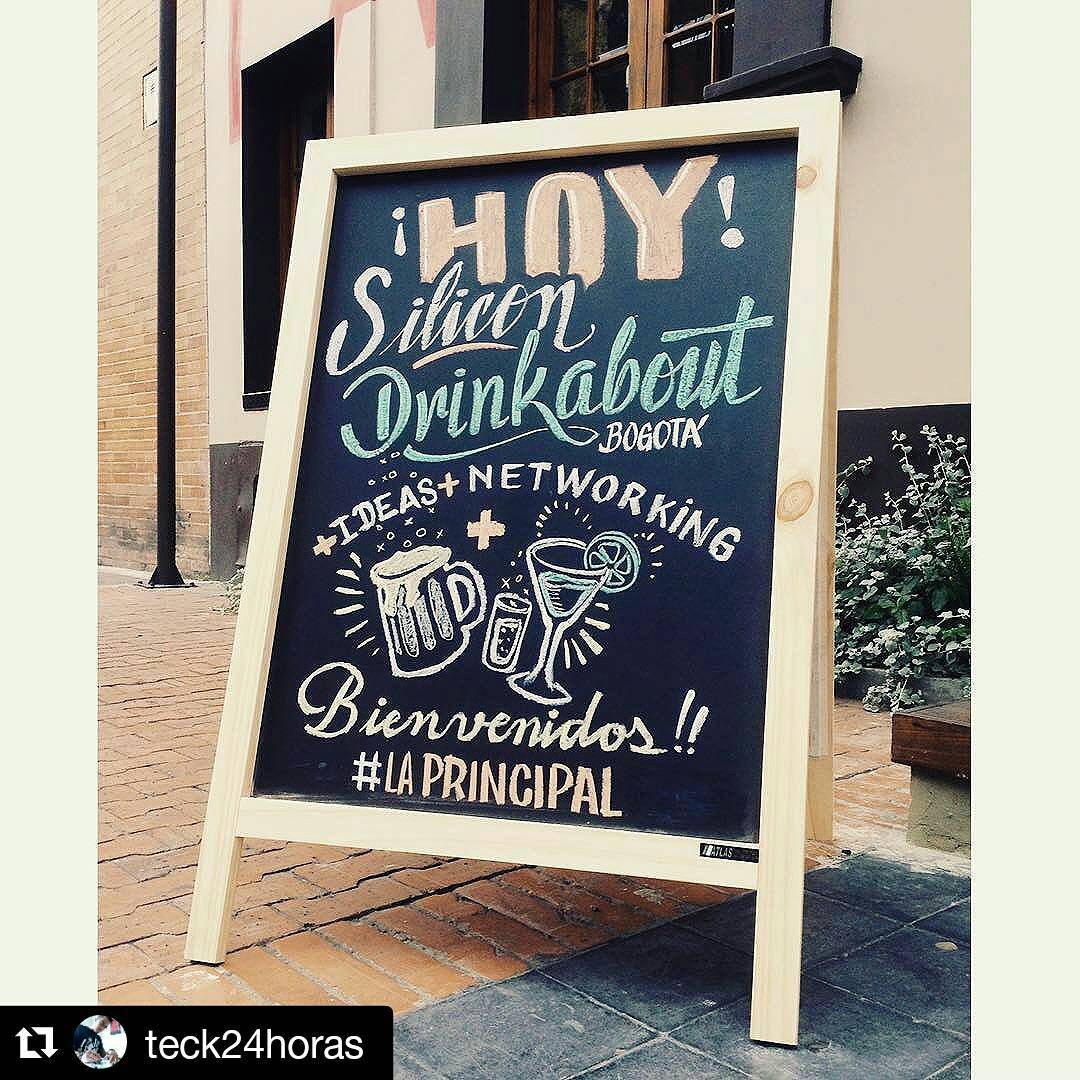 ¡HOY!
Silicon
Drinkabout
BOGOTÁ
+IDEAS+NETWORKING
+
Bienvenidos!!
#LA PRINCIPAL
ATLAS
teck24horas